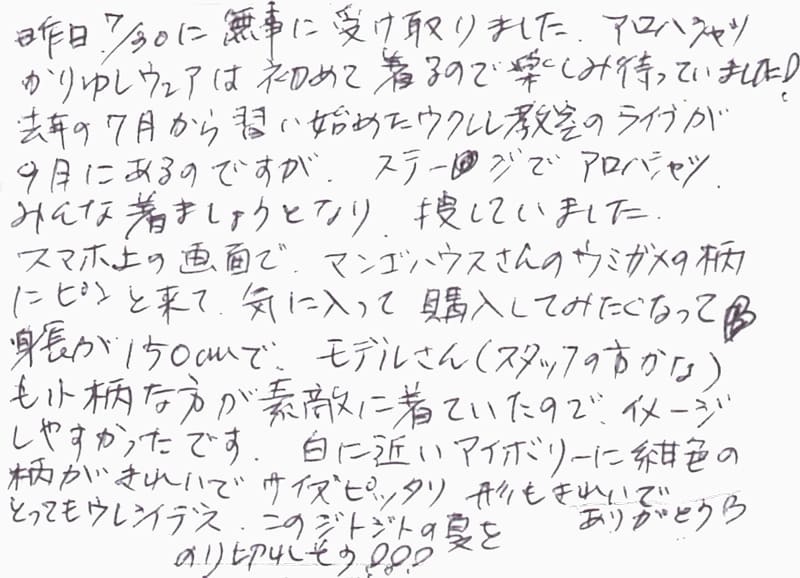 昨日、7/30に無事に受け取りました。アロハシャツ
かりゆしウェアは初めて着るので楽しみ待っていました!
去年の7月から習い始めたウクレレ教室のライブが
9月にあるのですが、ステージでアロハシャツ
みんな着ましょうとなり、捜していました。
スマホ上の画面で、マンゴハウスさんのウミガメの柄
にピンと来て、気に入って購入してみたくなって
身長が150cmで、モデルさん(スタッフの方かな)
も小柄な方が素敵に着ていたので、イメージ
しやすかったです。白に近いアイボリーに紺色の
柄がきれいでサイズピッタリ形もきれいで
とってもウレシイデス。このジトジトの夏を
ありがとう
のり切れしそう!!!